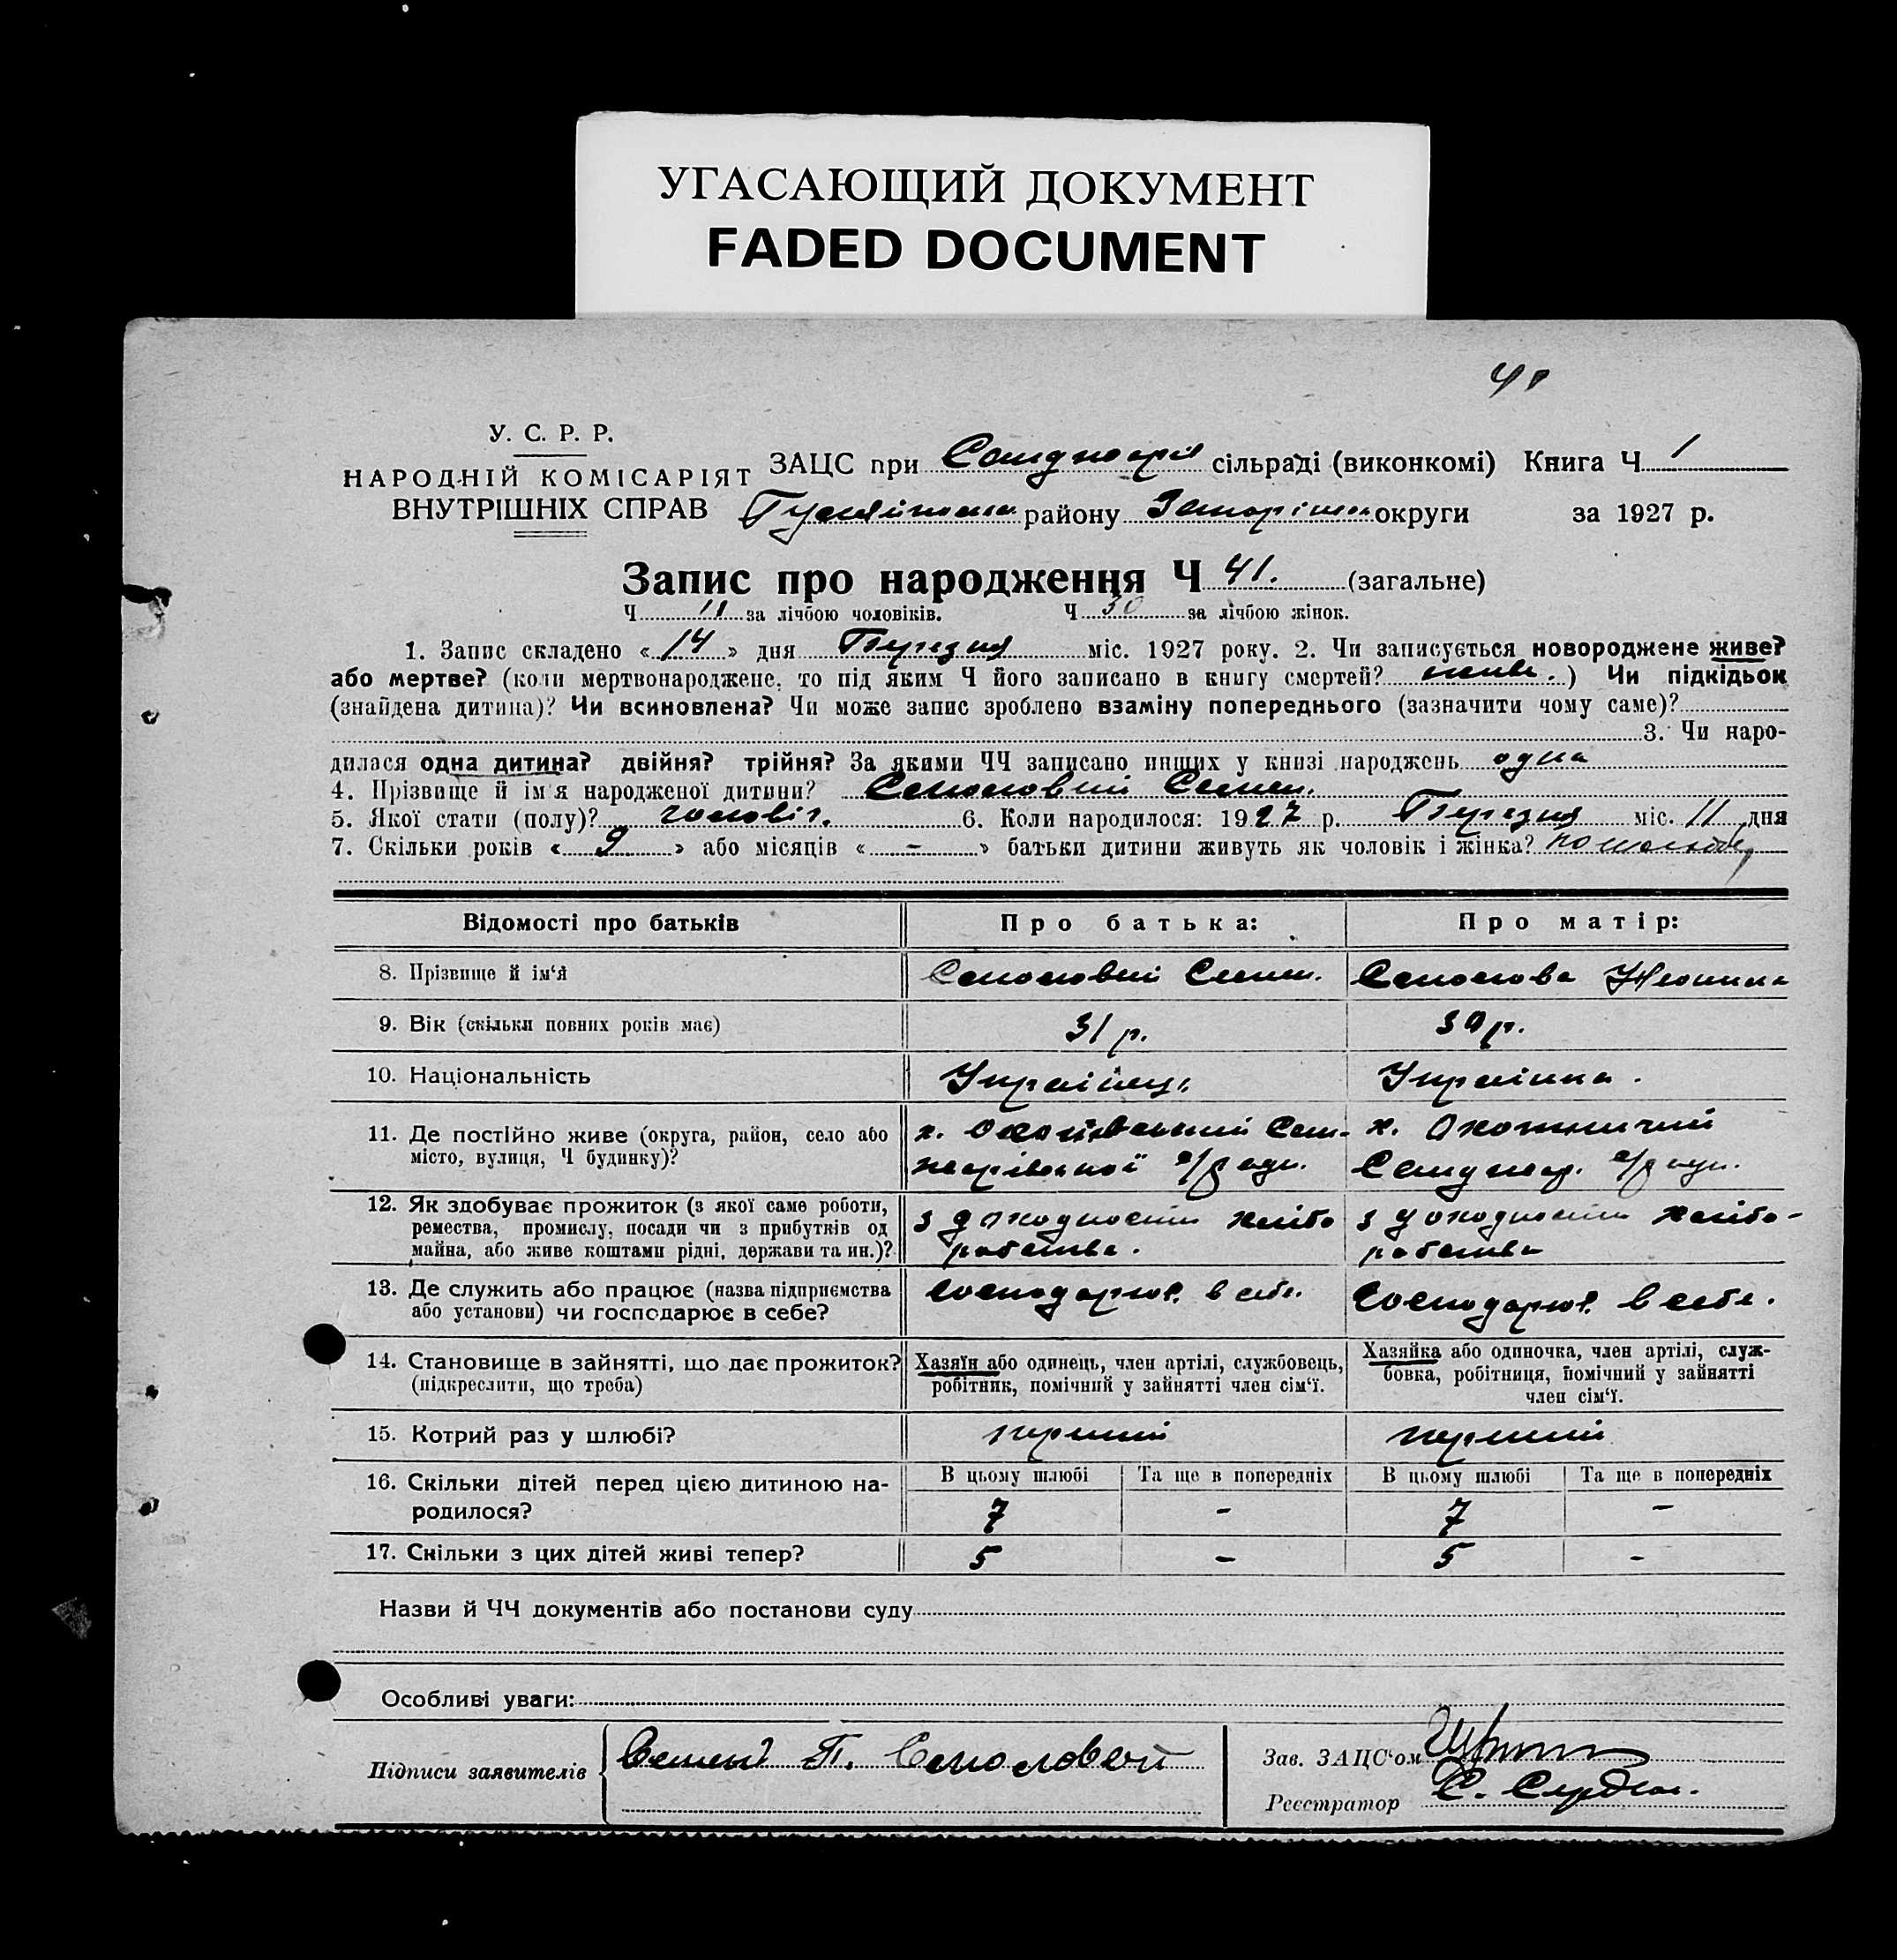 УГАСАЮЩИЙ ДОКУМЕНТ
FADED DOCUMENT
41
У. С. Р. Р.
НАРОДНІЙ КОМІСАРІЯТ
ВНУТРІШНІХ СПРАВ
ЗАЦС при сільраді (виконкомі) Книга Ч 1
району округи за 1927 р.
Запис про народження Ч 41. (загальне)
Ч 11 за лічбою чоловіків. Ч 30 за лічбою жінок.
1. Запис складено « 14 » дня Березня міс. 1927 року. 2. Чи записується новороджене живе?
або мертве? (коли мертвонароджене, то під яким Ч його записано в книгу смертей? живе.) Чи підкідьок
(знайдена дитина)? Чи всиновлена? Чи може запис зроблено взаміну попереднього (зазначити чому саме)?
3. Чи наро-
дилася одна дитина? двійня? трійня? За якими ЧЧ записано инших у книзі народжень одна
4. Прізвище й ім'я народженої дитини? Семен.
5. Якої стати (полу)? чоловіч. 6. Коли народилося: 1927 р. Березня міс. 11 дня
7. Скільки років « 9 » або місяців « - » батьки дитини живуть як чоловік і жінка?
Відомості про батьків
Про батька:
Про матір:
8. Прізвище й ім'я
Семен.
9. Вік (скільки повних років має)
31 р.
30 р.
10. Національність
Українець
Українка.
11. Де постійно живе (округа, район, село або
місто, вулиця, Ч будинку)?
х.
с/ради.
х.
с/ради.
12. Як здобуває прожиток (з якої саме роботи,
ремества, промислу, посади чи з прибутків од
майна, або живе коштами рідні, держави та ин.)?
з доходности хлібо
робства.
з доходности хлібо-
робства
13. Де служить або працює (назва підприємства
або установи) чи господарює в себе?
господарює в себе.
господарює в себе.
14. Становище в зайнятті, що дає прожиток?
(підкреслити, що треба)
Хазяїн або одинець, член артілі, службовець,
робітник, помічний у зайнятті член сім'ї.
Хазяйка або одиночка, член артілі, служ-
бовка, робітниця, помічний у зайнятті
член сім'ї.
15. Котрий раз у шлюбі?
перший
перший
16. Скільки дітей перед цією дитиною на-
родилося?
В цьому шлюбі
Та ще в попередніх
В цьому шлюбі
Та ще в попередніх
7
-
7
-
17. Скільки з цих дітей живі тепер?
5
-
5
-
Назви й ЧЧ документів або постанови суду
Особливі уваги:
Підписи заявителів
Семен П.
Зав. ЗАЦС'ом
Реєстратор С.